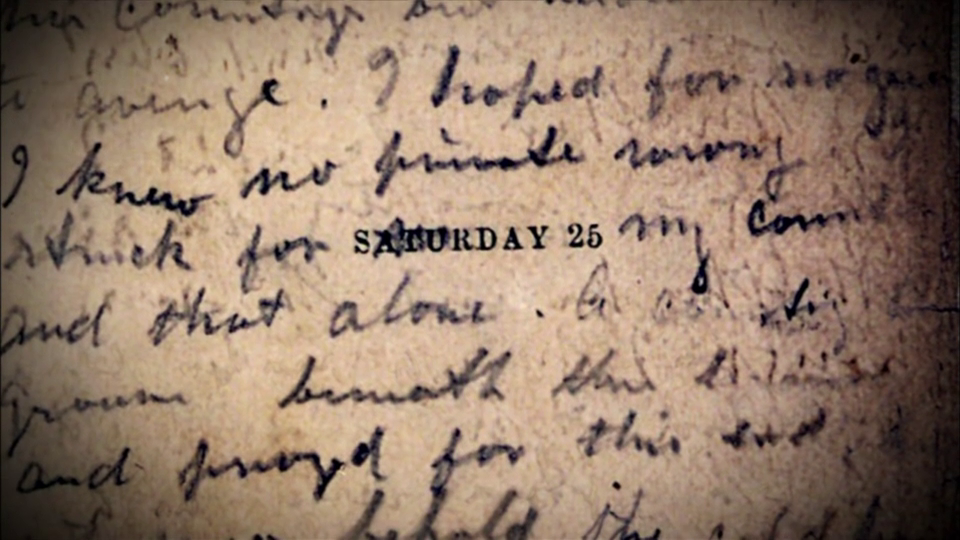 country but
to avenge. I hoped for no gain
I knew no private wrong
struck for my coun
SATURDAY 25
and that alone. A country
groun beneath the
and prayd for this end.
behold the cold